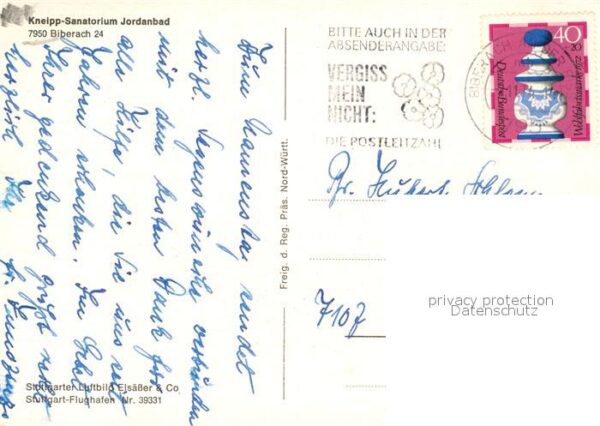 Kneipp-Sanatorium Jordanbad
7950 Biberach 24
Zum Namenstag sendet
herzl. Segenswünsche verbunden
mit dem besten Dank für
alle Hilfe, die Sie uns seit
Jahren schenken. Im Gebet
Ihrer gedenkend grüßt sehr
herzlich Ihre
Stuttgarter Luftbild Elsäßer & Co
Stuttgart-Flughafen Nr. 39331
Freig. d. Reg. Präs. Nord-Württ.
BITTE AUCH IN DER
ABSENDERANGABE:
VERGISS
MEIN
NICHT:
DIE POSTLEITZAHL
BIBERACH
40
20
Deutsche Bundespost
Wohlfahrtsmarke
Hubert
7107
privacy protection
Datenschutz